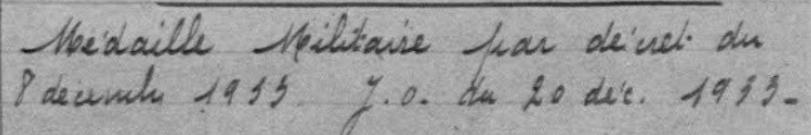 Médaille Militaire par décret du
8 décembre 1933 J.O. du 20 déc. 1933-